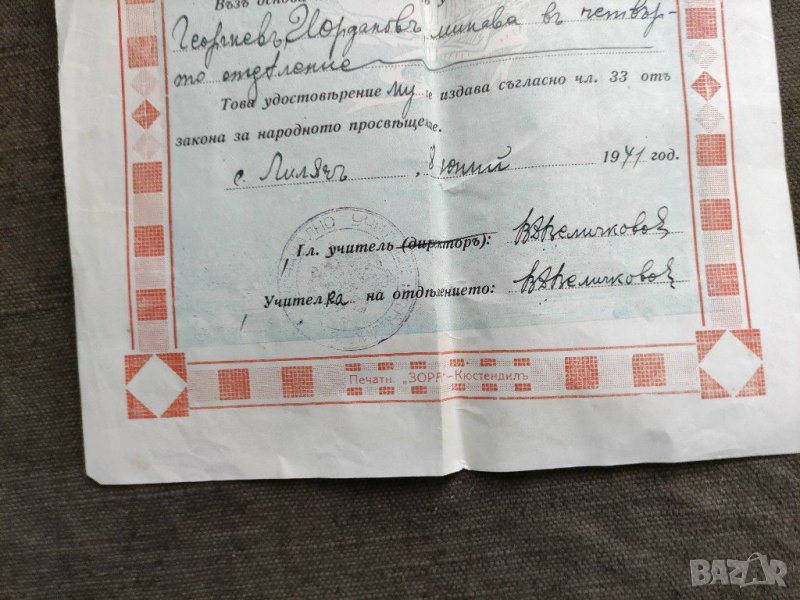 Възъ основа
Георгиевъ Йордановъ минава въ четвър-
то отдѣление
Това удостовѣрение му се издава съгласно чл. 33 отъ
закона за народното просвѣщение.
с. Лилячъ, 8 юний 1941 год.
Гл. учитель (директоръ): В. Д. Величкова
Учителка на отдѣлението: В. Д. Величкова
Печатн. „ЗОРА"-Кюстендилъ
BAZAR